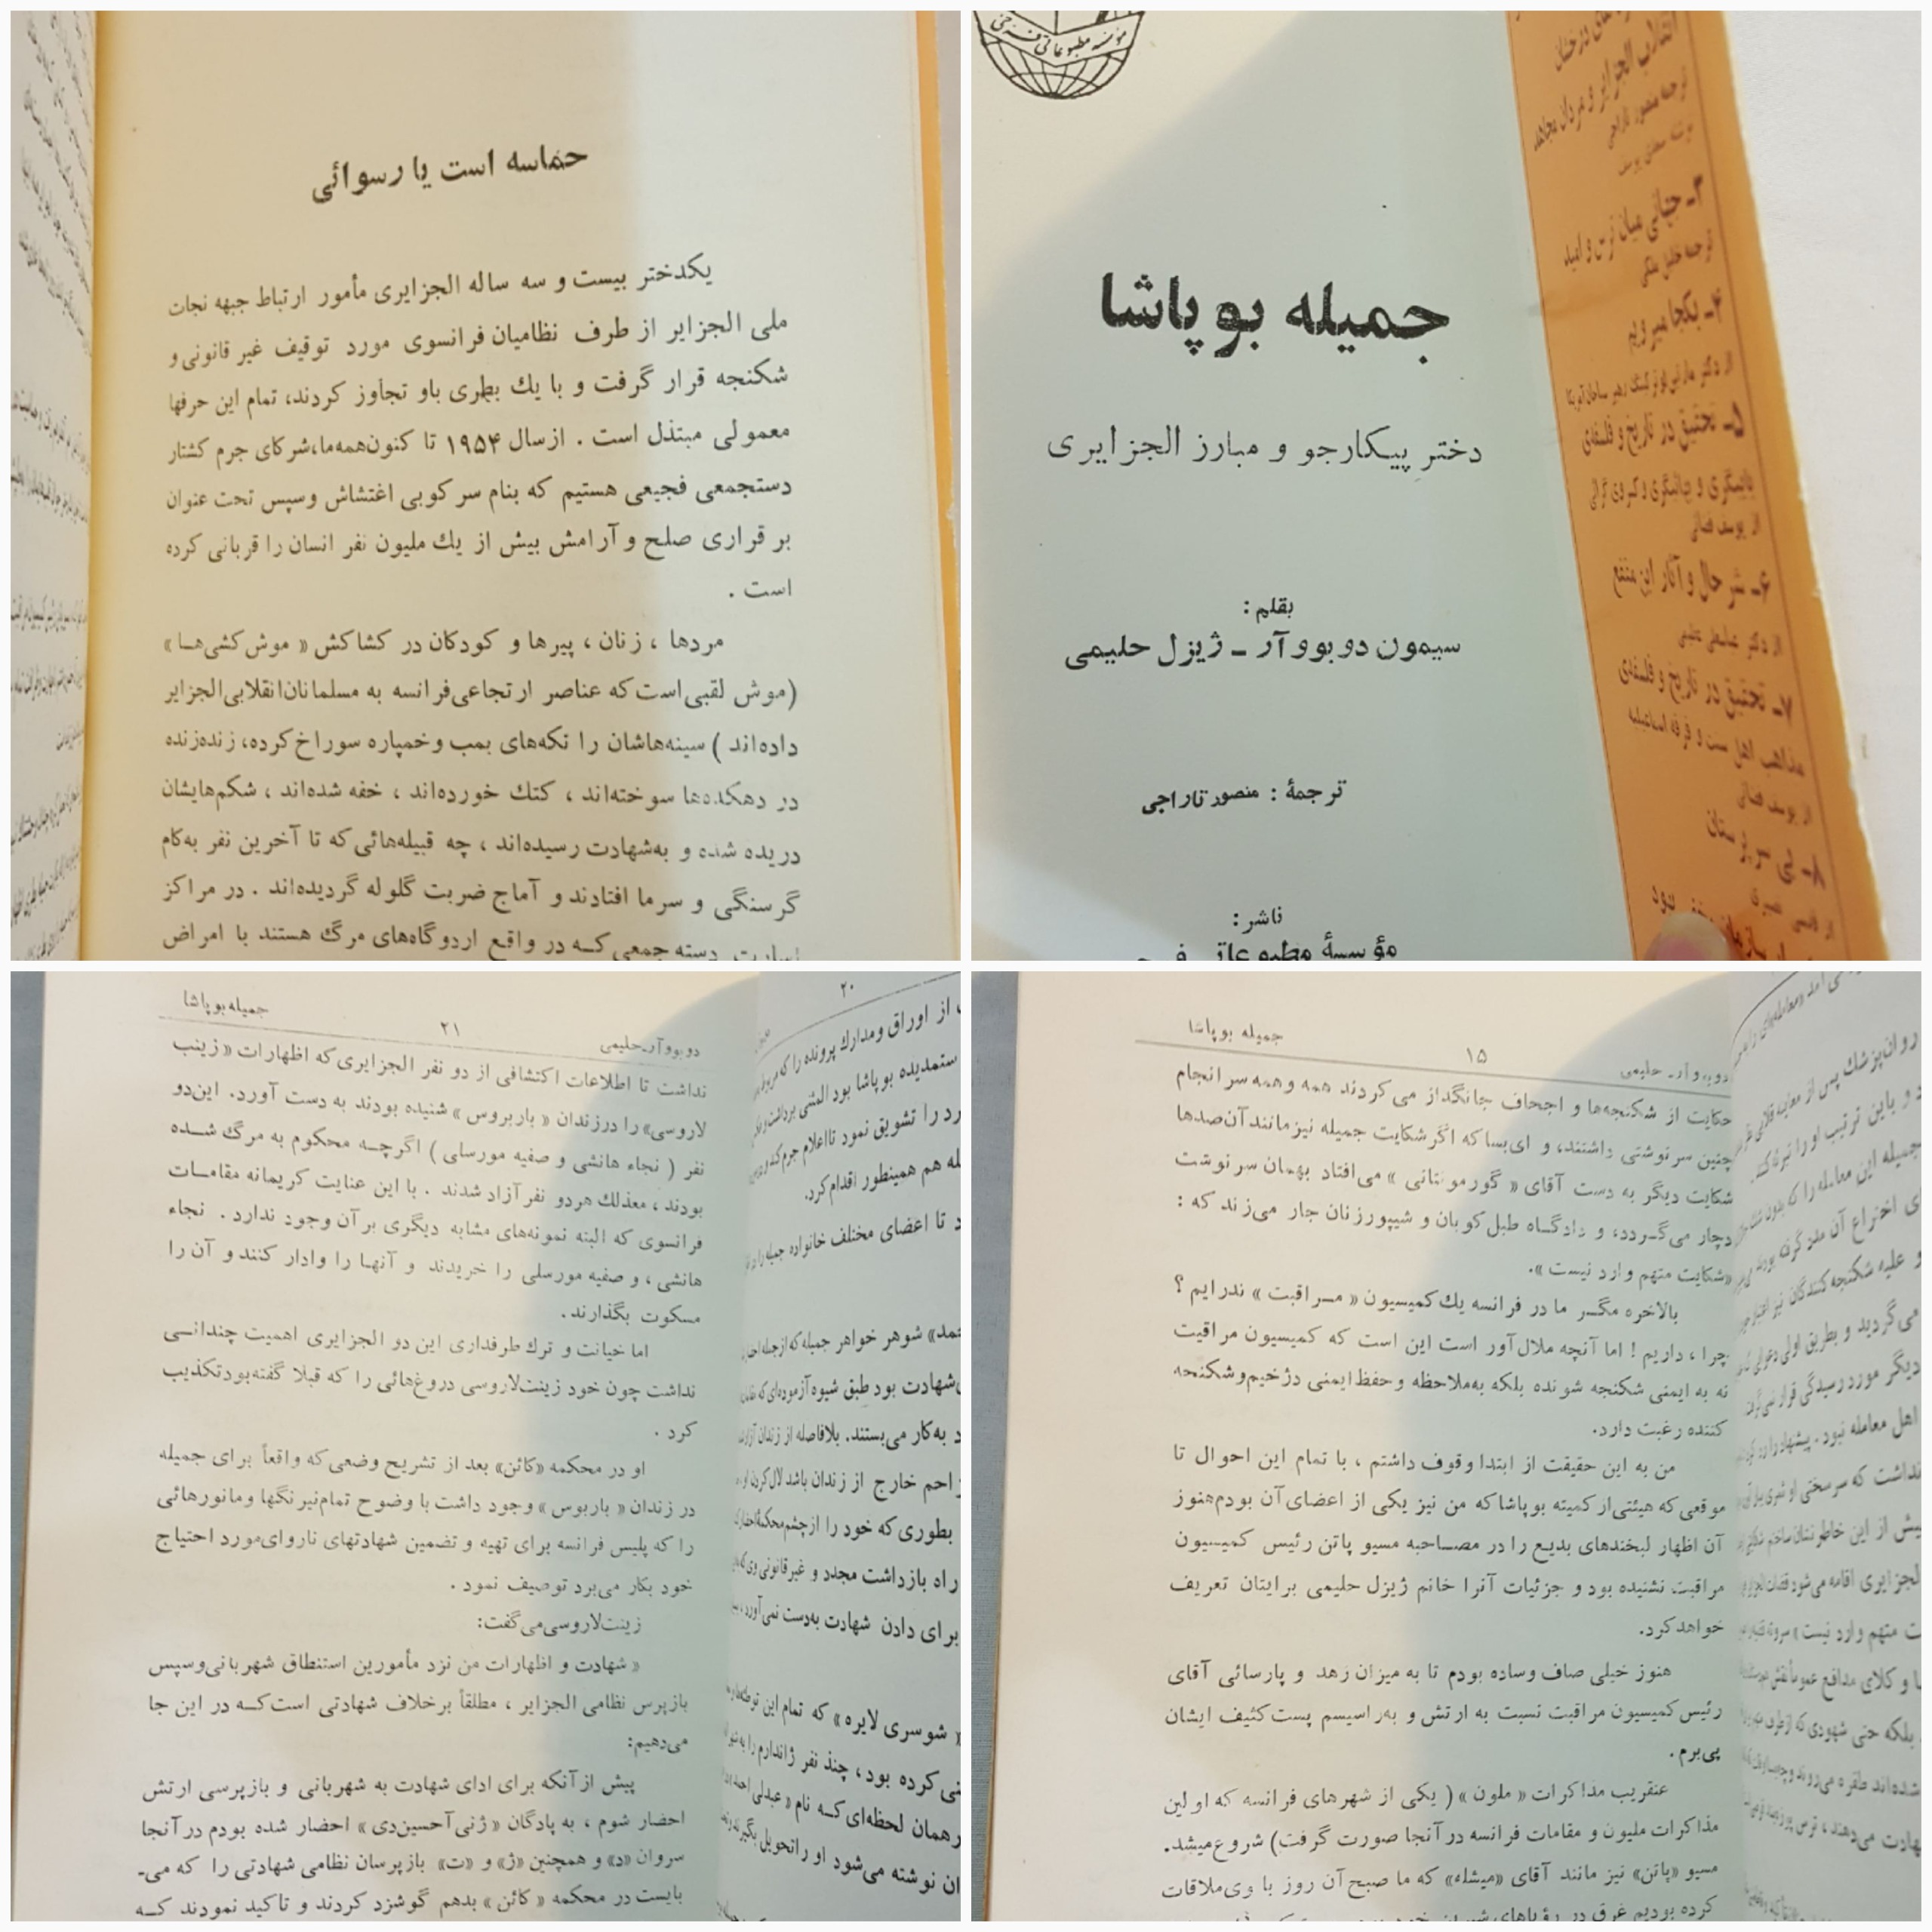 حماسه است یا رسوائی
یکدختر بیست و سه ساله الجزایری مأمور ارتباط جبهه نجات
ملی الجزایر از طرف نظامیان فرانسوی مورد توقیف غیر قانونی و
شکنجه قرار گرفت و با یك بطری باو تجاوز کردند، تمام این حرفها
معمولی مبتذل است . ازسال ۱۹۵۴ تا کنون‌همه‌ما،شرکای جرم کشتار
دستجمعی فجیعی هستیم که بنام سرکوبی اغتشاش وسپس تحت عنوان
برقراری صلح و آرامش بیش از یك ملیون نفر انسان را قربانی کرده
است .
مردها ، زنان ، پیرها و کودکان در کشاکش « موش‌کشی‌ها »
(موش لقبی‌است که عناصر ارتجاعی‌فرانسه به مسلمانان‌انقلابی‌الجزایر
داده‌اند ) سینه‌هاشان را تکه‌های بمب وخمپاره سوراخ‌کرده، زنده‌زنده
در دهکده‌ها سوخته‌اند ، کتك خورده‌اند ، خفه شده‌اند ، شکم‌هایشان
دریده شده و به‌شهادت رسیده‌اند ، چه قبیله‌هائی‌که تا آخرین نفر به‌کام
گرسنگی و سرما افتادند و آماج ضربت گلوله گردیده‌اند . در مراکز
دسته جمعی‌که در واقع اردوگاه‌های مرگ هستند با امراض
مؤسسه مطبوعاتی فرخی
جمیله بوپاشا
دخترِ پیکارجو و مبارز الجزایری
بقلم :
سیمون دوبووآر ـ ژیزل حلیمی
ترجمهٔ : منصور تاراجی
ناشر :
مؤسسهٔ مطبوعاتی
انقلاب الجزایر و مردان مجاهد
ترجمه منصور تاراجی
۳ـ جهانی میان ترس و امید
ترجمه خلیل ملکی
۴ـ بکجا میرویم
از دکتر مارتین لوترکینگ رهبر سیاهان آمریکا
۵ـ تحقیق در تاریخ و فلسفه‌ی
بابیگری و بهائیگری و کسروی گرائی
از یوسف فضائی
۶ـ شرح حال و آثار ابن مقفع
۷ـ تحقیق در تاریخ و فلسفه‌ی
مذاهب اهل سنت و فرقه اسماعیلیه
از یوسف فضائی
دوبووآرـحلیمی
۲۱
جمیله‌بوپاشا
نداشت تا اطلاعات اکتشافی از دو نفر الجزایری‌که اظهارات « زینب
لاروسی» را درزندان « باربروس » شنیده بودند به دست آورد. این‌دو
نفر ( نجاء هانشی و صفیه مورسلی ) اگرچه محکوم به مرگ شده
بودند ، معذلك هردو نفر آزاد شدند . با این عنایت کریمانه مقامات
فرانسوی که البته نمونه‌های مشابه دیگری برآن وجود ندارد . نجاء
هانشی ، و صفیه مورسلی را خریدند و آنها را وادار کنند و آن را
مسکوت بگذارند .
اما خیانت و ترك طرفداری این دو الجزایری اهمیت چندانی
نداشت چون خود زینت‌لاروسی دروغ‌هائی را که قبلا گفته‌بودتکذیب
کرد .
او در محکمه «کائن» بعد از تشریح وضعی‌که واقعاً برای جمیله
در زندان « باربوس » وجود داشت با وضوح تمام‌نیرنگها ومانورهائی
را که پلیس فرانسه برای تهیه و تضمین شهادتهای ناروای‌مورد احتیاج
خود بکار می‌برد توصیف نمود .
زینت‌لاروسی‌می‌گفت:
« شهادت و اظهارات من نزد مأمورین استنطاق شهربانی‌وسپس
بازپرس نظامی الجزایر ، مطلقاً برخلاف شهادتی است‌که در این جا
می‌دهیم:
پیش از آنکه برای ادای شهادت به شهربانی و بازپرسی ارتش
احضار شوم ، به پادگان « ژنی‌آحسین‌دی » احضار شده بودم در آنجا
سروان «د» و همچنین «ژ» و «ت» بازپرسان نظامی شهادتی را که می‌ـ
بایست در محکمه « کائن » بدهم گوشزد کردند و تاکید نمودند که
۲۰
از اوراق ومدارك پرونده را که
ستمدیده بوپاشا بود المثنی برداشت و
را تشویق نمود تااعلام جرم‌کند و
هم همینطور اقدام کرد.
تا اعضای مختلف خانواده جمیله را
شوهر خواهر جمیله که ازجمله
شهادت بود طبق شیوه آزموده‌ای که
به‌کار می‌بستند. بلافاصله از زندان
خارج از زندان باشد
بطوری که خود را ازچشم
راه بازداشت مجدد و غیرقانونی وی
برای دادن شهادت به‌دست نمی‌آورد
« شوسری لایره » که تمام این
کرده بود ، چند نفر ژاندارم را
همان لحظه‌ای‌که نام « عبدلی
نوشته می‌شود او را تحویل بگیرند
دوبووآرـ حلیمی
۱۵
جمیله بوپاشا
حکایت از شکنجه‌ها و اجحاف جانگداز می‌کردند همه وهمه سرانجام
چنین سرنوشتی داشتند، و ای‌بساکه اگرشکایت جمیله نیزمانندآن‌صدها
شکایت دیگر به دست آقای « گورمونتانی » می‌افتاد بهمان سرنوشت
دچار می‌گردد، و دادگاه طبل‌کوبان و شیپورزنان جار می‌زند که :
«شکایت متهم وارد نیست ».
بالاخره مگر ما در فرانسه یك‌کمیسیون « مراقبت » نداریم ؟
چرا ، داریم ! اما آنچه ملال‌آور است این است که کمیسیون مراقبت
نه به ایمنی شکنجه شونده بلکه به‌ملاحظه وحفظ ایمنی دژخیم‌وشکنجه
کننده رغبت دارد.
من به این حقیقت از ابتدا وقوف داشتم ، با تمام این احوال تا
موقعی‌که هیئتی‌از کمیته بوپاشاکه من نیز یکی از اعضای‌آن بودم‌هنوز
آن اظهار لبخندهای بدیع را در مصاحبه مسیو پاتن رئیس کمیسیون
مراقبت نشنیده بود و جزئیات آنرا خانم ژیزل حلیمی برایتان تعریف
خواهدکرد.
هنوز خیلی صاف وساده بودم تا به میزان زهد و پارسائی آقای
رئیس‌کمیسیون مراقبت نسبت به ارتش و به‌راسیسم پست‌کثیف ایشان
پی‌برم .
عنقریب مذاکرات « ملون » ( یکی از شهرهای فرانسه که اولین
مذاکرات ملیون و مقامات فرانسه درآنجا صورت گرفت) شروع‌میشد.
مسیو «پاتن» نیز مانند آقای «میشله» که ما صبح‌آن روز با وی‌ملاقات
کرده بودیم غرق در رؤیاهای
روان‌پزشك پس از معاینه
و باین ترتیب او را تبرئه کند.
جمیله این معامله را که بدون
اختراع آن مدد گرفته بودند
و علیه شکنجه‌کنندگان نیز
می‌گردید و بطریق اولی دعوائی
دیگر مورد رسیدگی قرار نمی‌گرفت.
اهل معامله نبود . پیشنهاد را رد
نداشت که سرسختی او
پیش از این خاطر نشان ساختم
لجزایری اقامه می‌شود
متهم وارد نیست »
و کلای مدافع عموماً
بلکه حتی شهودی که ازطرف
شده‌اند طفره می‌روند و
شهادت می‌دهند ، ترس